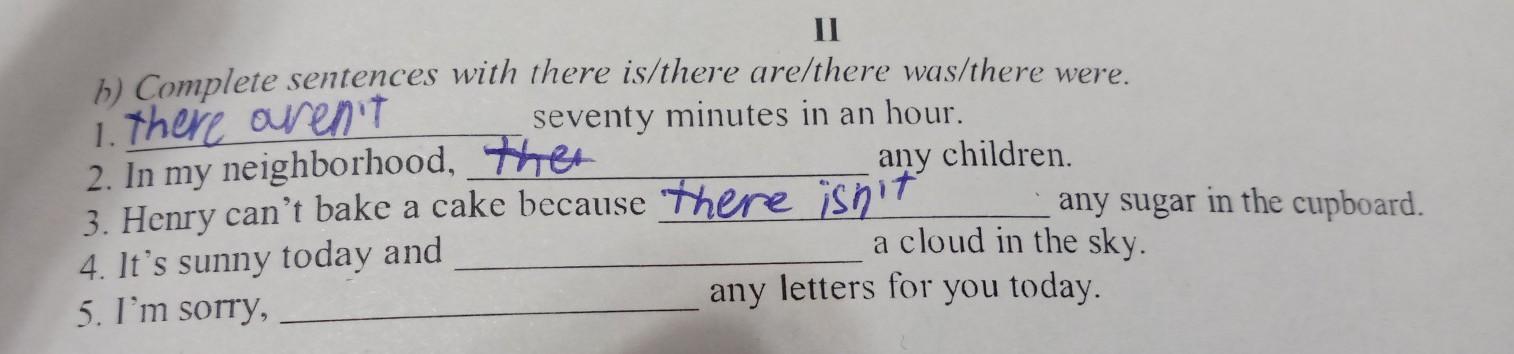 II
b) Complete sentences with there is/there are/there was/there were.
1. there aren't seventy minutes in an hour.
2. In my neighborhood, ther any children.
3. Henry can't bake a cake because there isn't any sugar in the cupboard.
4. It's sunny today and ____________________ a cloud in the sky.
5. I'm sorry, ____________________ any letters for you today.